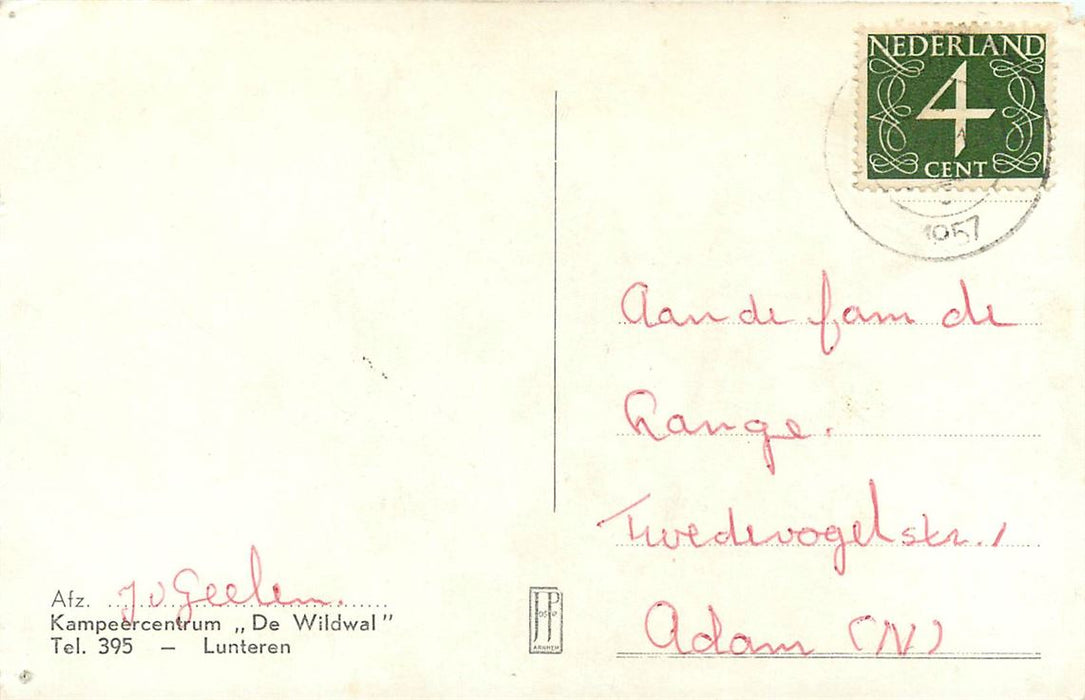 NEDERLAND
4
CENT
1957
Aan de fam de
Lange.
Twedevogelstr. 1
Adam (N)
Afz. J v Geelen.
Kampeercentrum „De Wildwal”
Tel. 395 — Lunteren
JP
ARNHEM